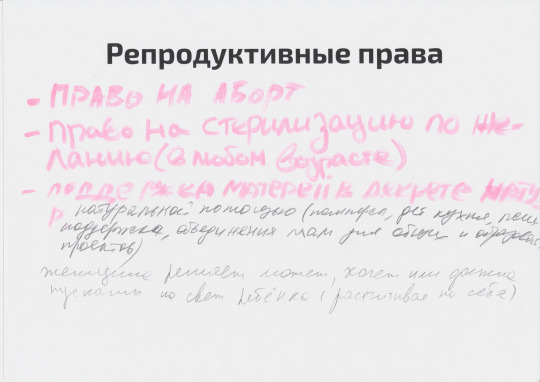 Репродуктивные права
- ПРАВО НА АБОРТ
- Право на стерилизацию по же-
ланию (в любом возрасте)
- поддержка матерей в декрете нату
р натуральной помощью (памперсы, дет кухня, псих
поддержка, объединения мам для общих и
проектов)
женщина решает может, хочет или должна
пускать на свет ребёнка (рассчитывая на себя)